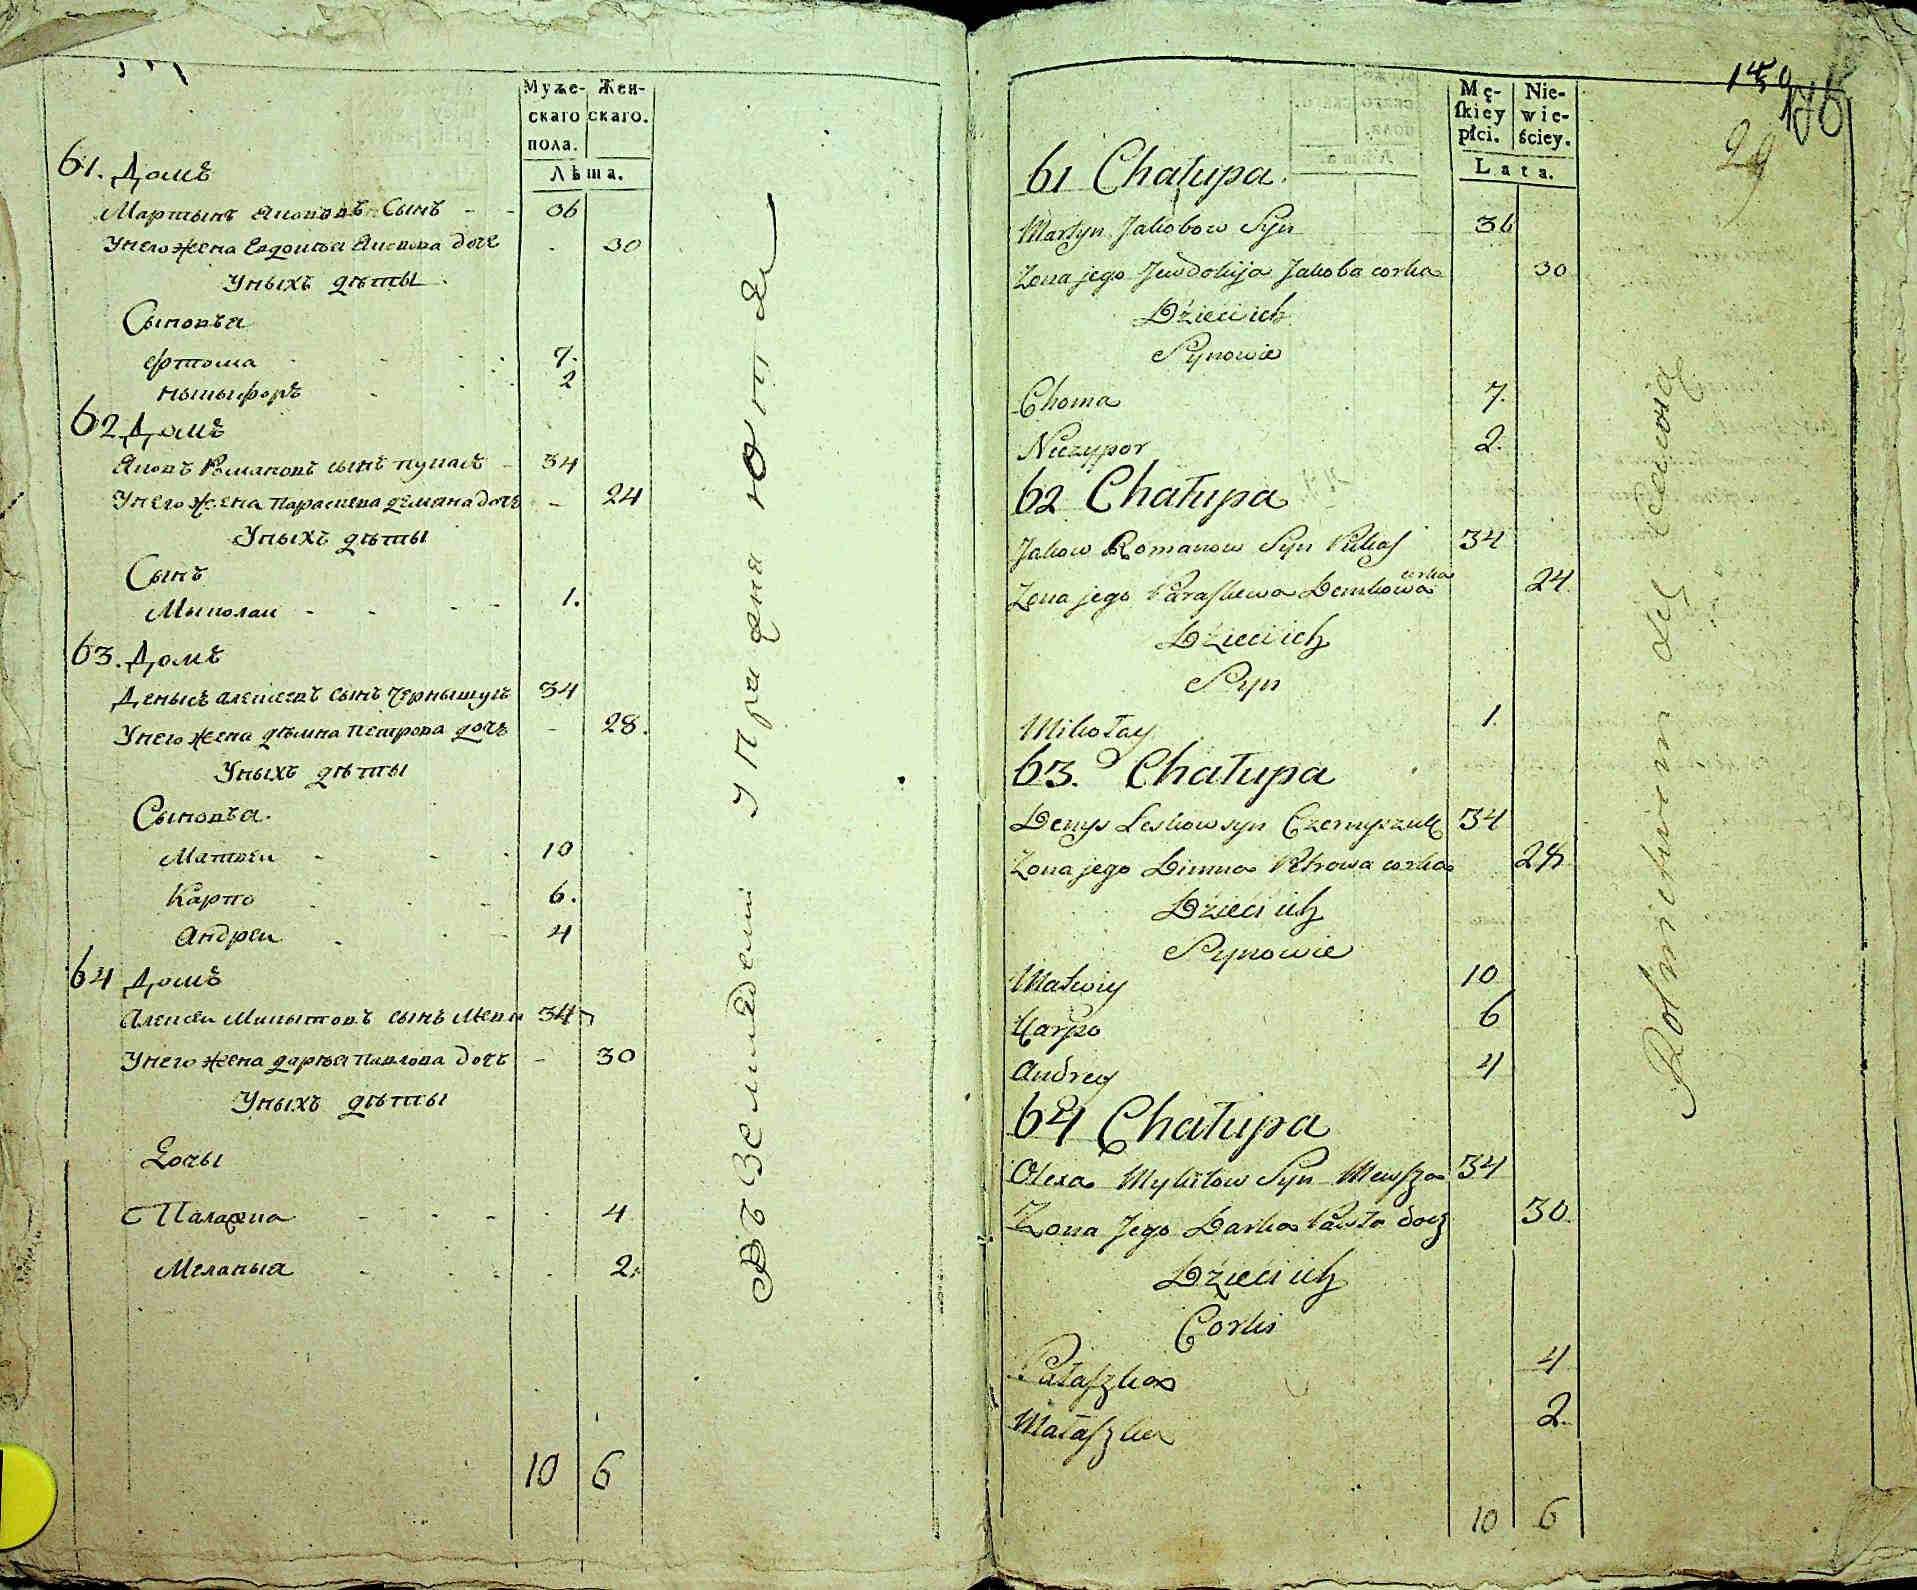 Муже- Жен-
скаго скаго.
пола.
Лѣта.
61. Домъ
Мартынъ Якововъ Сынъ - - 36
Унего жена Евдокѣя Яковова дочь - 30
Уныхъ дѣты
Сыновѣя
Фтома 7.
Ныкыфоръ 2
62 Домъ
Яковъ Романовъ сынъ пукасъ 34
Унего жена Параскева демкова дочь - 24
Уныхъ дѣты
Сынъ
Мыколаи - - - 1.
63. Домъ
Денысъ алексѣевъ сынъ Чернышукъ 34
Унего жена дѣмна Петрова дочь - 28.
Уныхъ дѣты
Сыновѣя.
Матвеи - - 10
Карпо 6.
Андреи - - 4
64 Домъ
Алексеи Микытовъ сынъ 34
Унего жена дарѣя Павлова дочь - 30
Уныхъ дѣты
Дочы
Палажка - - - 4
Меланыя - - - 2.
10 6
149
176
29
Mę- Nie-
ſkiey wie-
płci. ściey.
Lata.
61 Chałupa.
Martyn Jakobow Syn 36
Zona jego Jewdokija Jakoba corka 30
Dzieci ich
Synowie
Choma 7.
Niczypor 2.
62 Chałupa
Jakow Romanow Syn Pukaſ 34
Zona jego Paraſkewa Demkowa corka 24.
Dzieci ich
Syn
Mikołay 1.
63. Chałupa
Denys Leskow syn Czernyszuk 34
Zona jego Dimna Petrowa corka 28
Dzieci ich
Synowie
Matwiy 10
Karpo 6
Andrey 4
64 Chałupa
Olexa Mykitow Syn Mewſza 34
Zona Jego Darka Pawła docz 30.
Dzieci ich
Corki
Pałaſzka 4
Małaſzka 2.
10 6